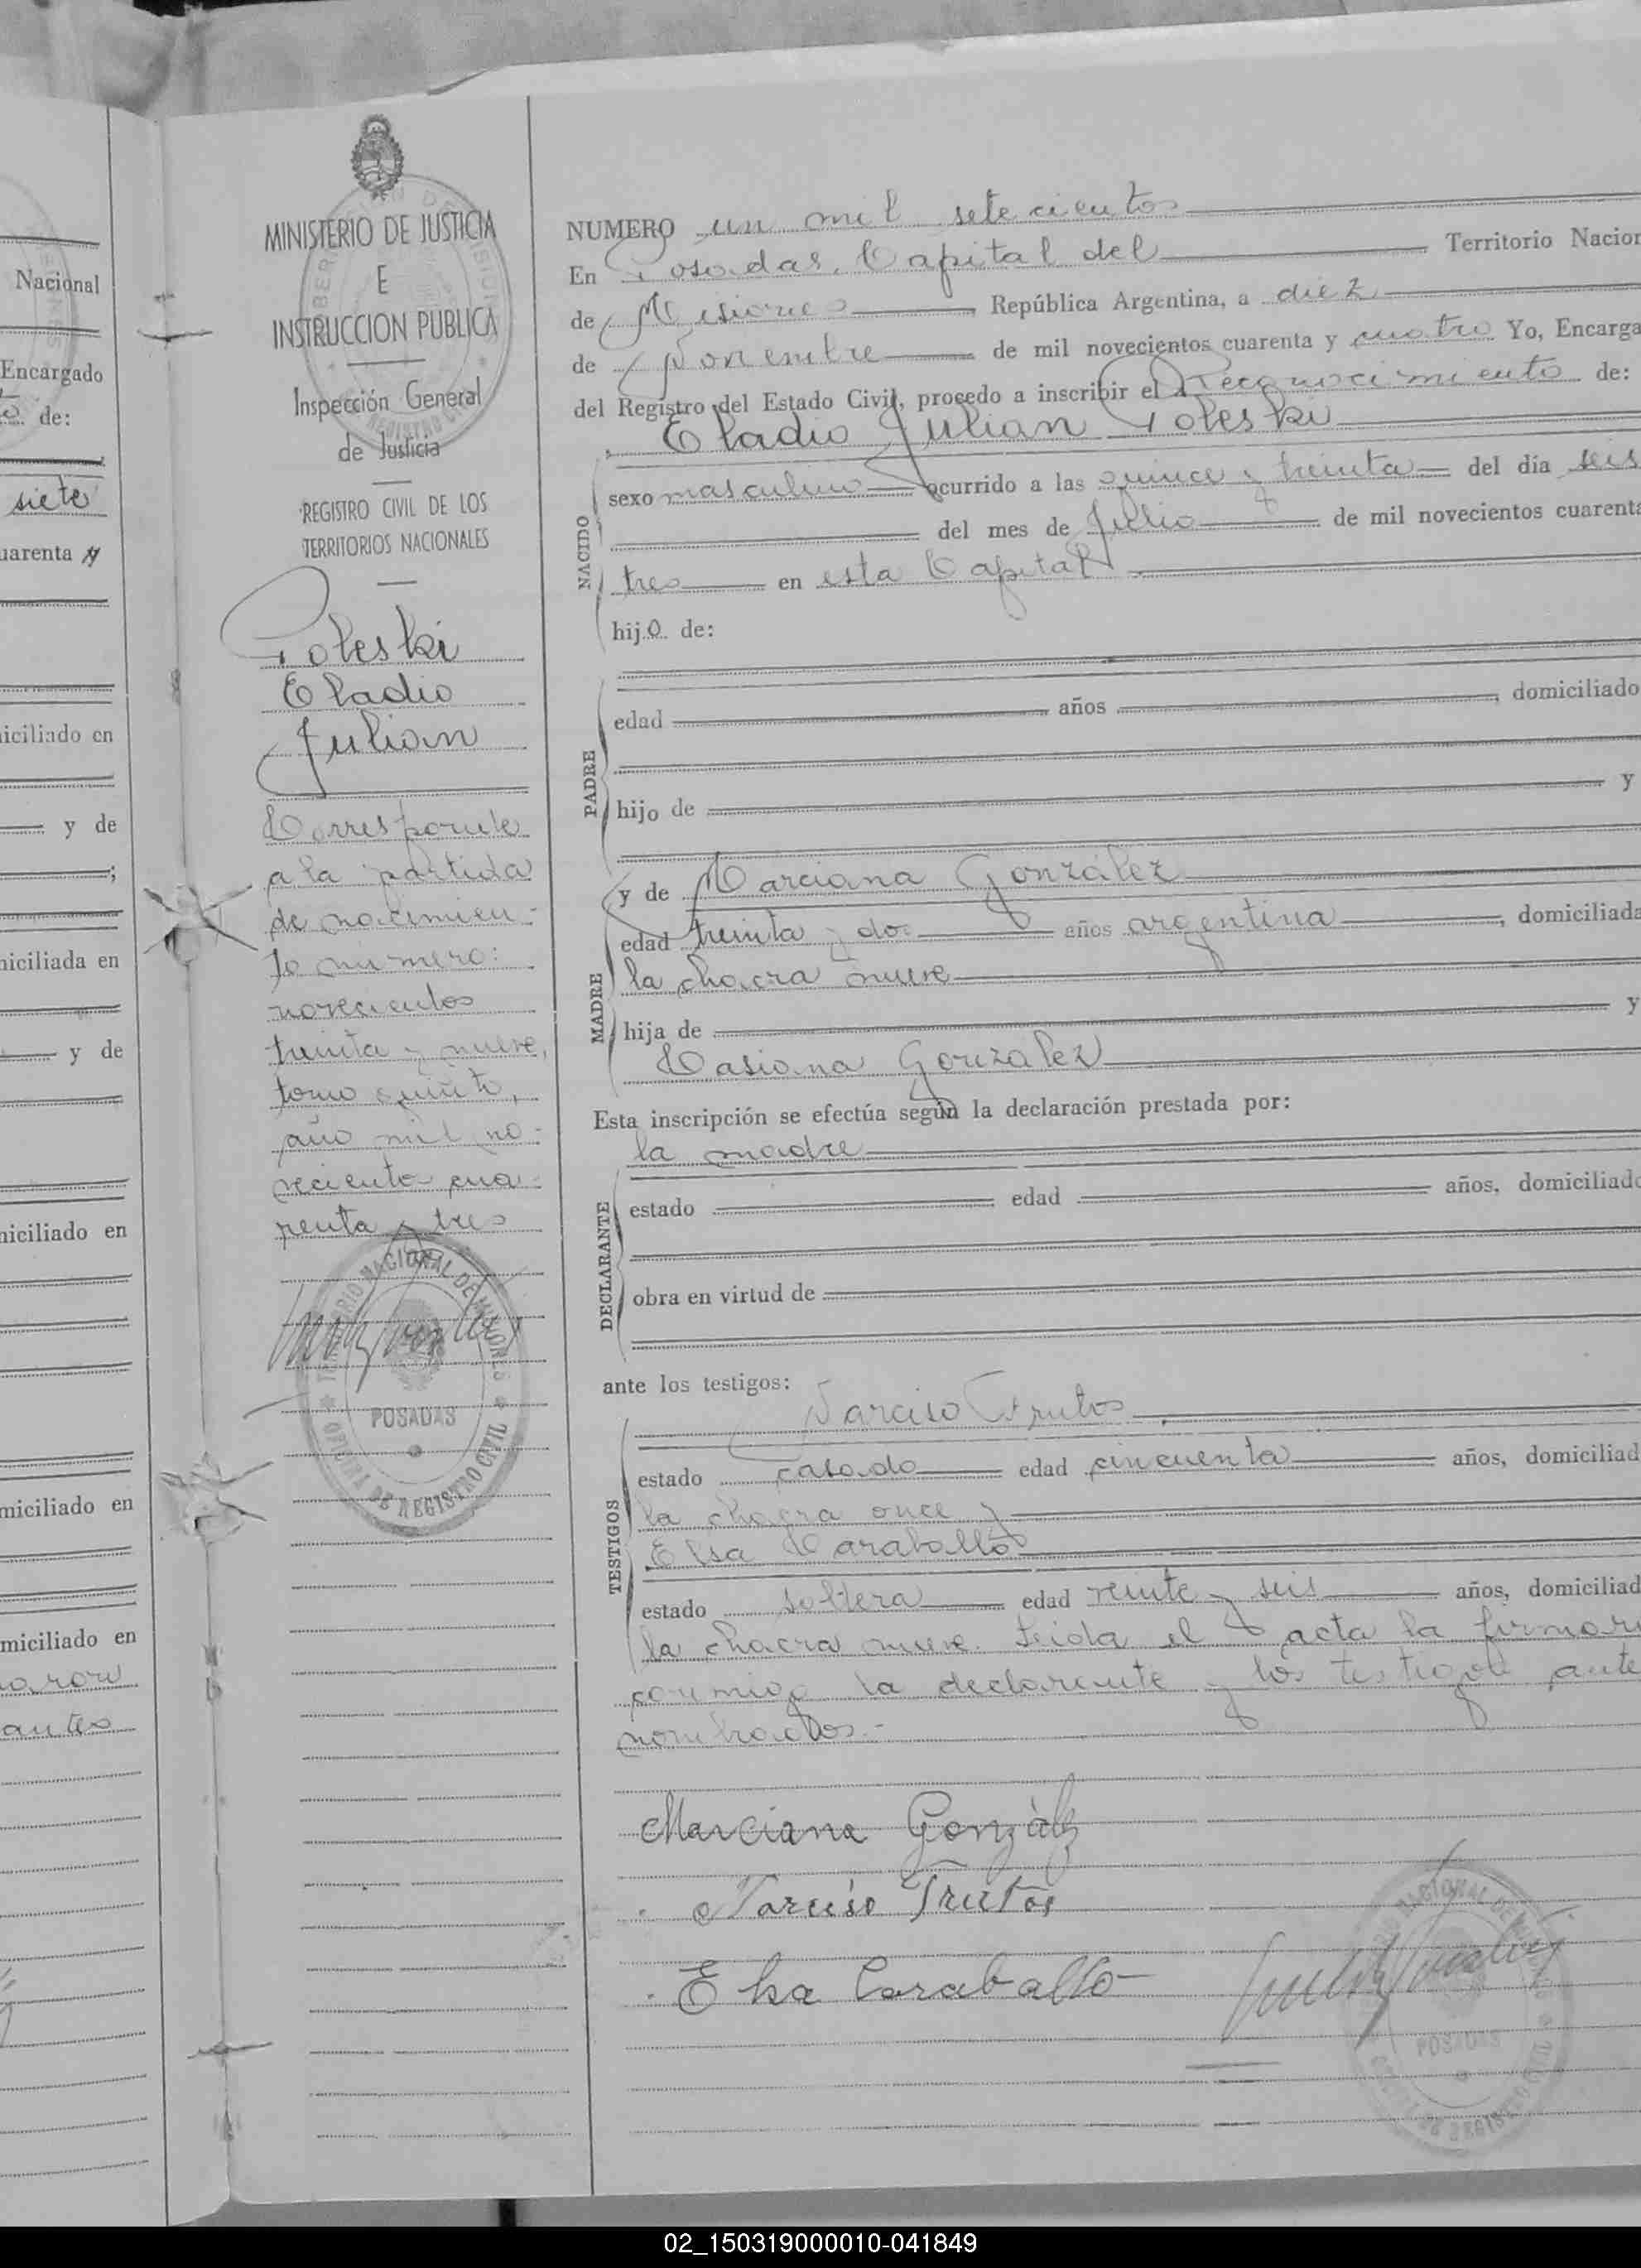 Nacional
Encargado
de:
siete
uarenta y
iciliado en
y de
;
niciliada en
y de
niciliado en
miciliado en
miciliado en
antes
MINISTERIO DE JUSTICIA
E
INSTRUCCION PUBLICA
Inspección General
de Justicia
REGISTRO CIVIL DE LOS
TERRITORIOS NACIONALES
Poleski
Eladio
Julian
Corresponde
a la partida
de nacimien-
to numero:
novecientos
treinta y nueve,
tomo quinto,
año mil no-
veciento cua-
renta y tres
TERRITORIO NACIONAL DE MISIONES
POSADAS
OFICINA DE REGISTRO CIVIL
NUMERO un mil setecientos
En Posadas, Capital del Territorio Nacion
de Misiones República Argentina, a diez
de Noviembre de mil novecientos cuarenta y cuatro Yo, Encarga
del Registro del Estado Civil, procedo a inscribir el Reconocimiento de:
Eladio Julian Poleski
NACIDO
sexo masculino ocurrido a las quince y treinta del día seis
del mes de Julio de mil novecientos cuarenta
tres en esta Capital
hijo de:
PADRE
edad años , domiciliado
hijo de y
MADRE
y de Marciana González
edad treinta y dos años argentina , domiciliada
la chacra nueve
hija de y
Casiana González
Esta inscripción se efectúa según la declaración prestada por:
la madre
DECLARANTE
estado edad años, domiciliado
obra en virtud de
ante los testigos:
TESTIGOS
Narciso Frutos
estado casado edad cincuenta años, domiciliad
la chacra once y
Elsa Caraballo
estado soltera edad veinte y seis años, domiciliad
la chacra nueve. Leida el acta la firmaron
conmigo la declarante y los testigos ante
nombrados.-
Marciana González
Narciso Frutos
Elsa Caraballo
POSADAS
02_150319000010-041849